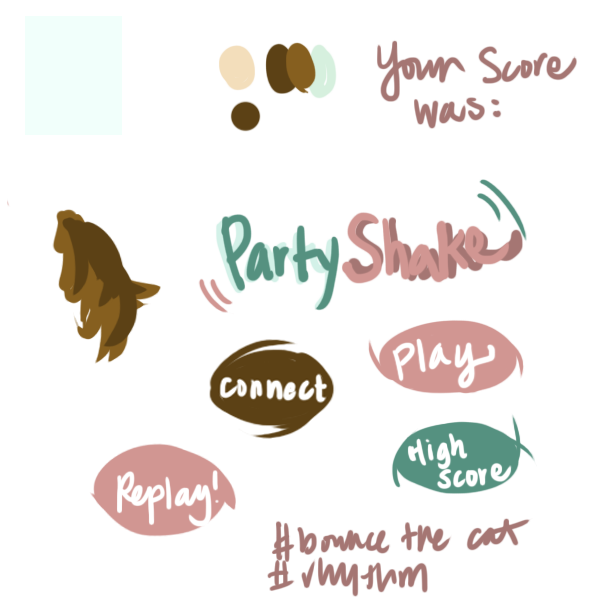 Your Score
was:
Party Shake
connect
Play
High
score
Replay!
#bounce the cat
#rhythm